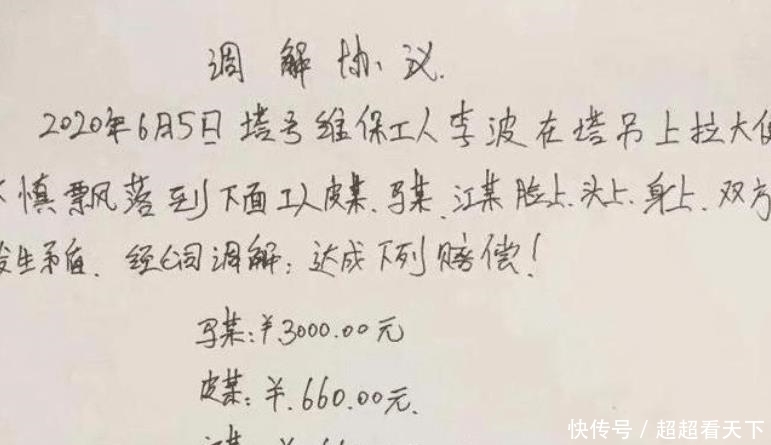 调解协议.
2020年6月5日塔号维保工人李波在塔吊上拉大便
不慎飘落到下面工人皮某.马某.江某脸上.头上.身上.双方
发生矛盾.经公司调解:达成下列赔偿!
马某:¥.3000.00元
皮某:¥.660.00元.
江某:¥.66
快传号/超超看天下